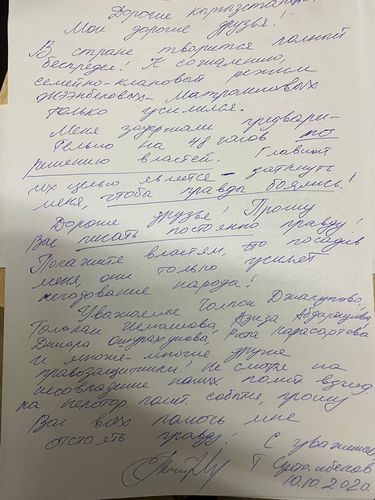 Дорогие кыргызстанцы!
Мои дорогие друзья!
В стране творится полный
беспредел! К сожалению,
семейно-клановый режим
Жээнбековых-Матраимовых
только усилился.
Меня задержали предвари-
тельно на 48 часов по
решению властей. Главной
их целью является - заткнуть
меня, чтобы правды боялись!
Дорогие друзья! Прошу
Вас писать постоянно правду!
Покажите властям, что посадив
меня, они только усилят
негодование народа!
Уважаемые Чолпон Джакупова,
Толекан Исмаилова, Азиза Абдирасулова,
Динара Ошурахунова, Рита Карасартова
и многие-многие другие
правозащитники, не смотря на
несовпадение наших полит. взгляд.
на некотор. полит. события, прошу
Вас всех помочь мне
отстоять правду!
С уважением,
Т Султанбеков
10.10.2020.